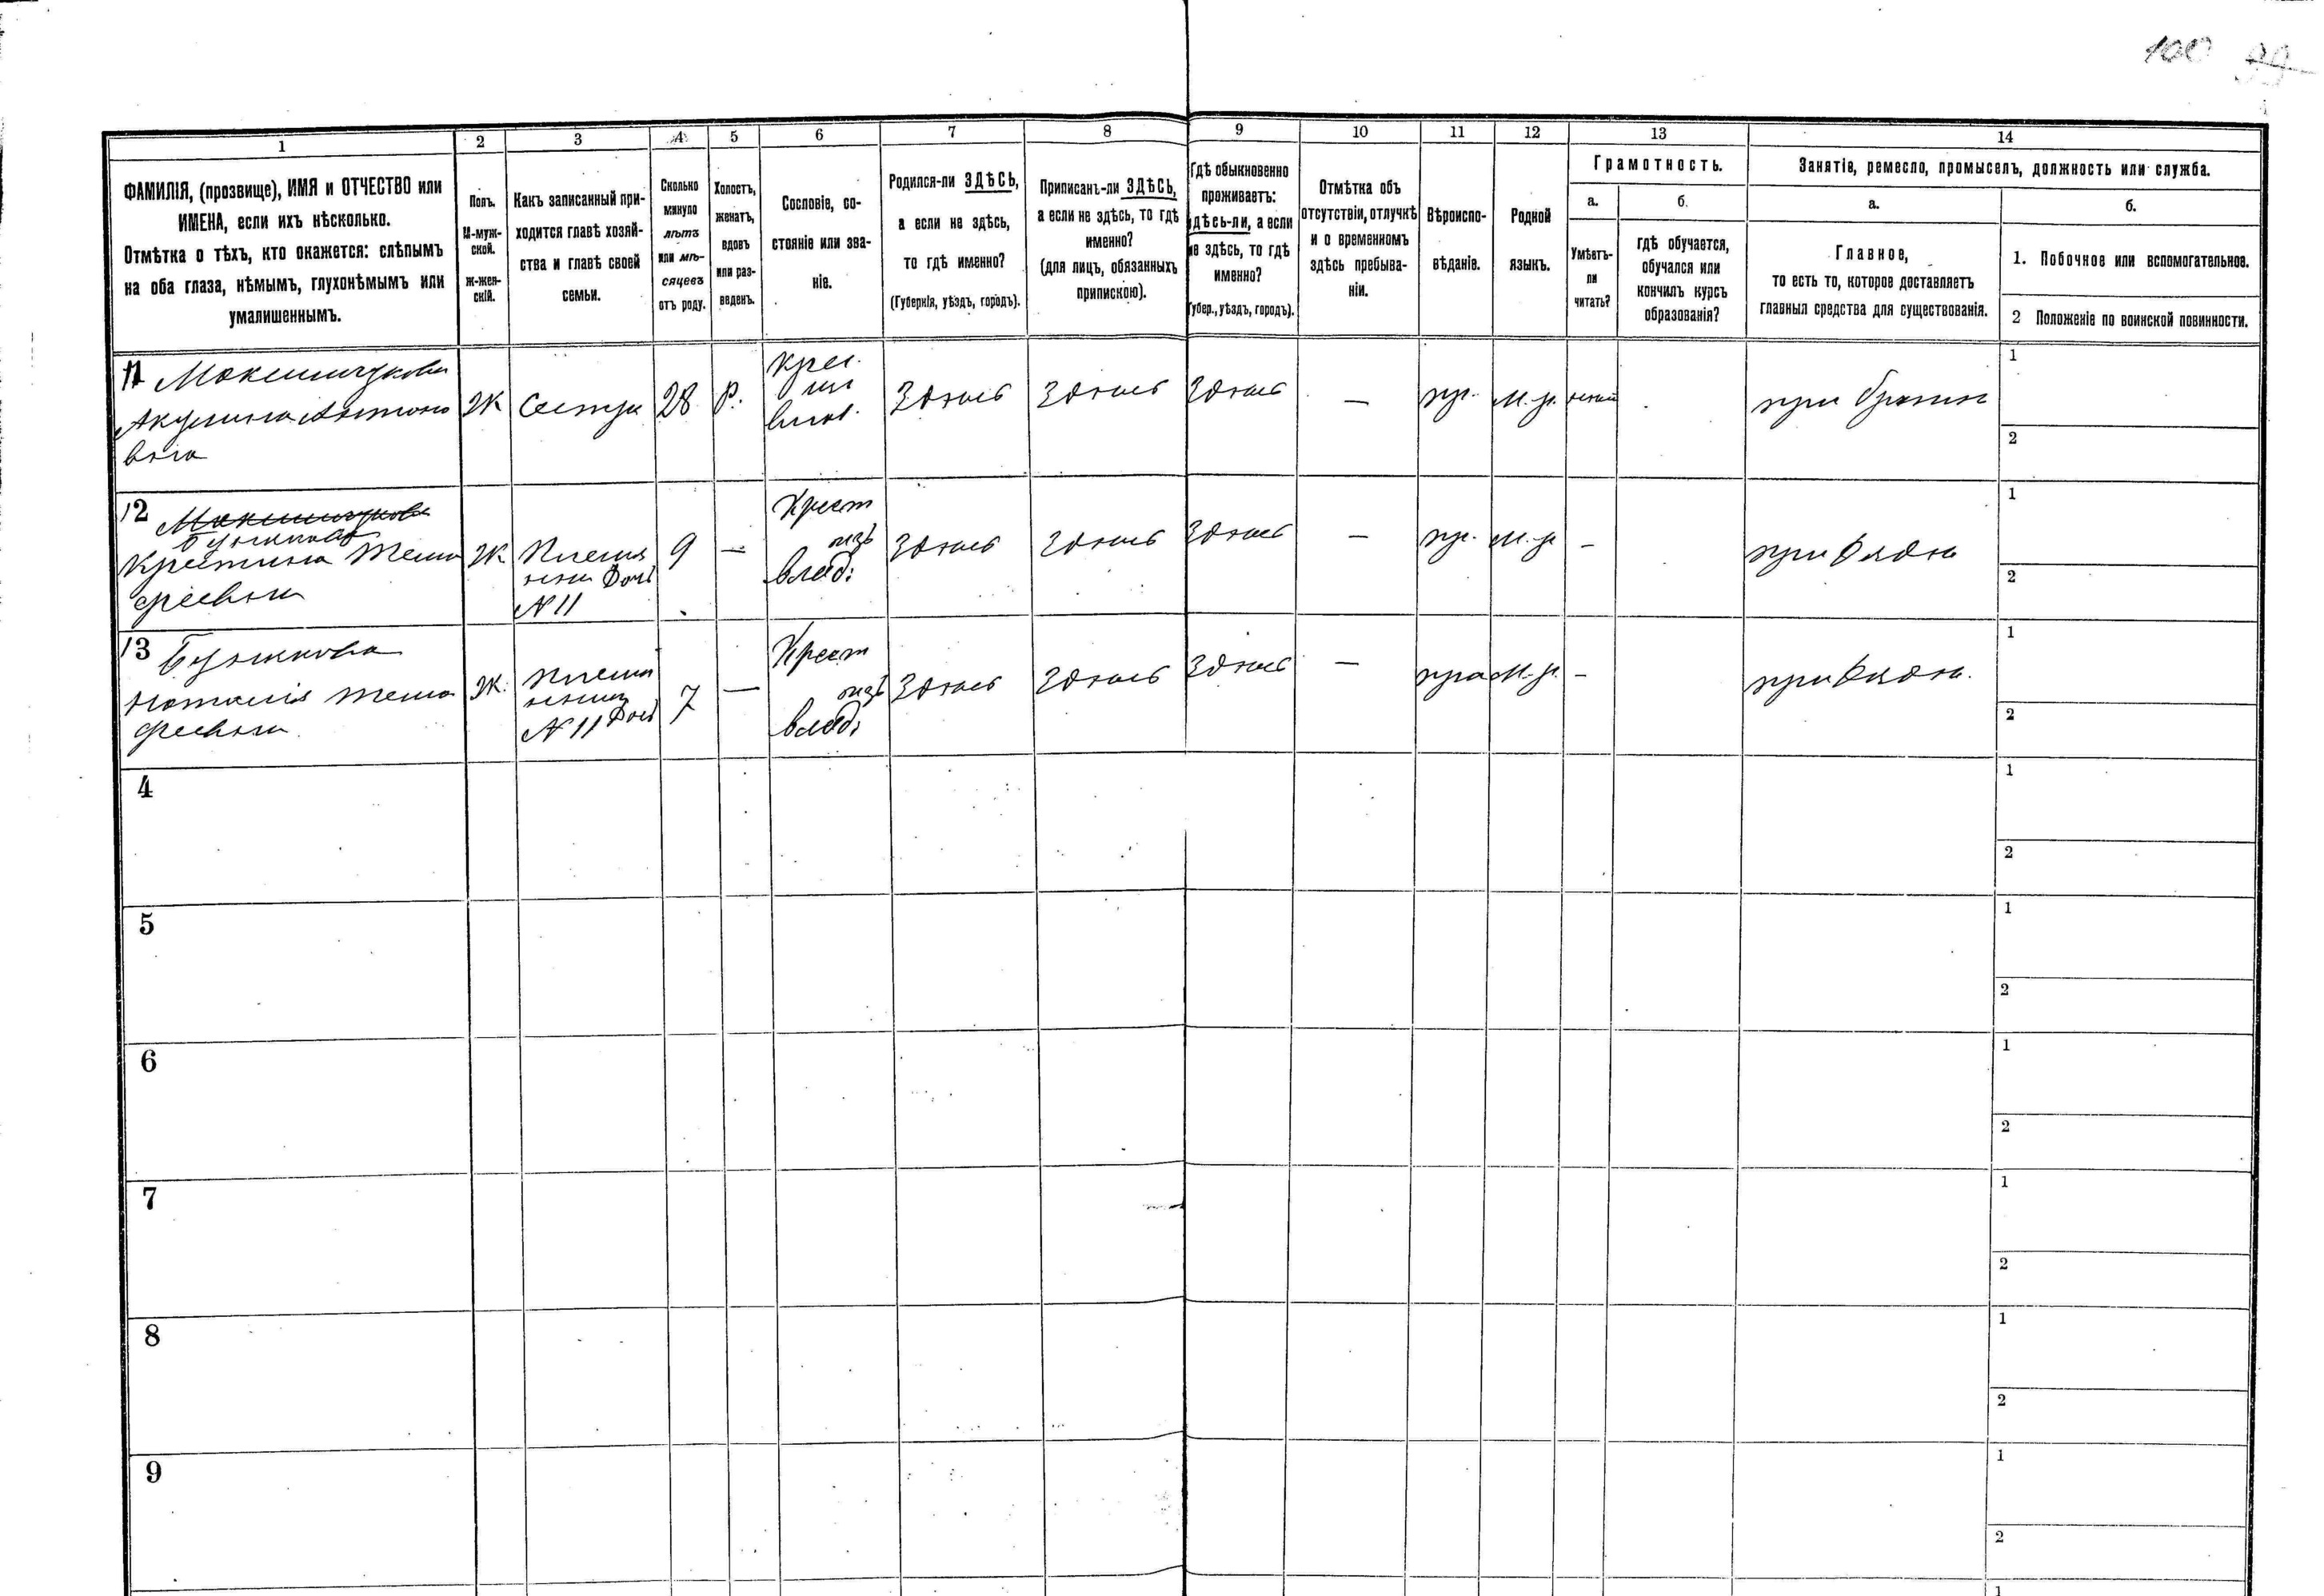 100 99
1 2 3 4 5 6 7 8 9 10 11 12 13 14
ФАМИЛІЯ, (прозвище), ИМЯ и ОТЧЕСТВО или
ИМЕНА, если ихъ нѣсколько.
Отмѣтка о тѣхъ, кто окажется: слѣпымъ
на оба глаза, нѣмымъ, глухонѣмымъ или
умалишеннымъ.
Полъ.
М-муж-
ской.
ж-жен-
скій.
Какъ записанный при-
ходится главѣ хозяй-
ства и главѣ своей
семьи.
Сколько
минуло
лѣтъ
или мѣ-
сяцевъ
отъ роду.
Холостъ,
женатъ,
вдовъ
или раз-
веденъ.
Сословіе, со-
стояніе или зва-
ніе.
Родился-ли ЗДѢСЬ,
а если не здѣсь,
то гдѣ именно?
(Губернія, уѣздъ, городъ).
Приписанъ-ли ЗДѢСЬ,
а если не здѣсь, то гдѣ
именно?
(для лицъ, обязанныхъ
припискою).
Гдѣ обыкновенно
проживаетъ:
здѣсь-ли, а если
не здѣсь, то гдѣ
именно?
(Губер., уѣздъ, городъ).
Отмѣтка объ
отсутствіи, отлучкѣ
и о временномъ
здѣсь пребыва-
ніи.
Вѣроиспо-
вѣданіе.
Родной
языкъ.
Грамотность.
а.
Умѣетъ-
ли
читать?
б.
гдѣ обучается,
обучался или
кончилъ курсъ
образованія?
Занятіе, ремесло, промыселъ, должность или служба.
а.
Главное,
то есть то, которое доставляетъ
главныя средства для существованія.
б.
1. Побочное или вспомогательное.
2 Положеніе по воинской повинности.
11
Акулина Антоно
вна
Ж Сестра 28 Р.
Крес.
из
влад.
Здѣсь Здѣсь Здѣсь — пр. М.р. нѣтъ при братѣ
1
2
12
Кристина Тимо
феевна
Ж
Племян
ница Дочь
N 11
9 —
Крест
изъ
влад:
Здѣсь Здѣсь Здѣсь — пр. М.р – при дядѣ
1
2
13
Наталія Тимо
феевна
Ж.
Племян
ница
N 11 Дочь
7 —
Крест
изъ
влад:
Здѣсь Здѣсь Здѣсь — пра М.р. – при дядѣ.
1
2
4
1
2
5
1
2
6
1
2
7
1
2
8
1
2
9
1
2
1